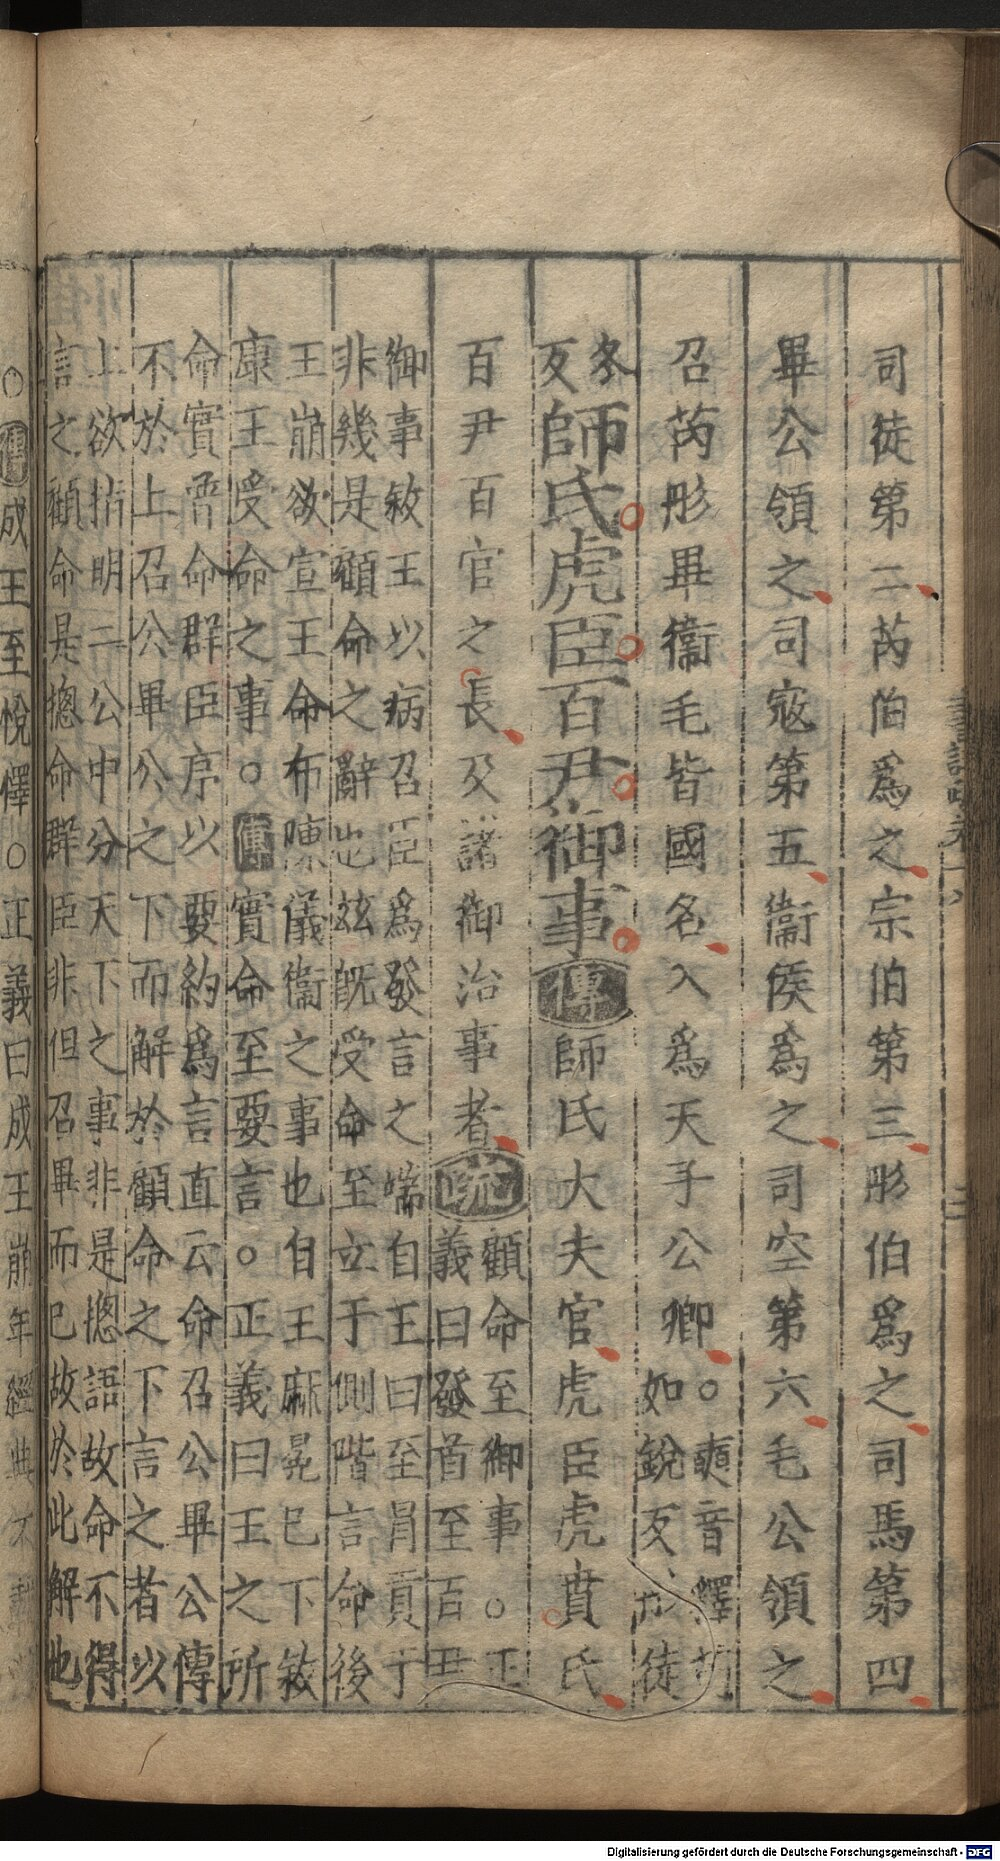 司徒第二芮伯爲之宗伯第三彤伯爲之司馬第四
畢公領之司寇第五衞侯爲之司空第六毛公領之
召芮彤畢衞毛皆國名入爲天子公卿○奭音釋
如銳反徒
冬
反
師氏虎臣百尹御事傳師氏大夫官虎臣虎賁氏
百尹百官之長及諸御治事者疏
顧命至御事○正
義曰發首至百尹
御事敘王以病召臣爲發言之端自王曰至冐貢于
非幾是顧命之辭也玆旣受命至立于側階言命後
王崩欲宣王命布陳儀衞之事也自王麻冕已下敘
康王受命之事○傳實命至要言○正義曰王之所
命實普命群臣序以要約爲言直云命召公畢公傳
不於上召公畢公之下而解於顧命之下言之者以
上欲指明二公中分天下之事非是摠語故命不得
言之顧命是摠命群臣非但召畢而已故於此解也
○傳成王至悅懌○正義曰成王崩年經典不
Digitalisierung gefördert durch die Deutsche Forschungsgemeinschaft - DFG